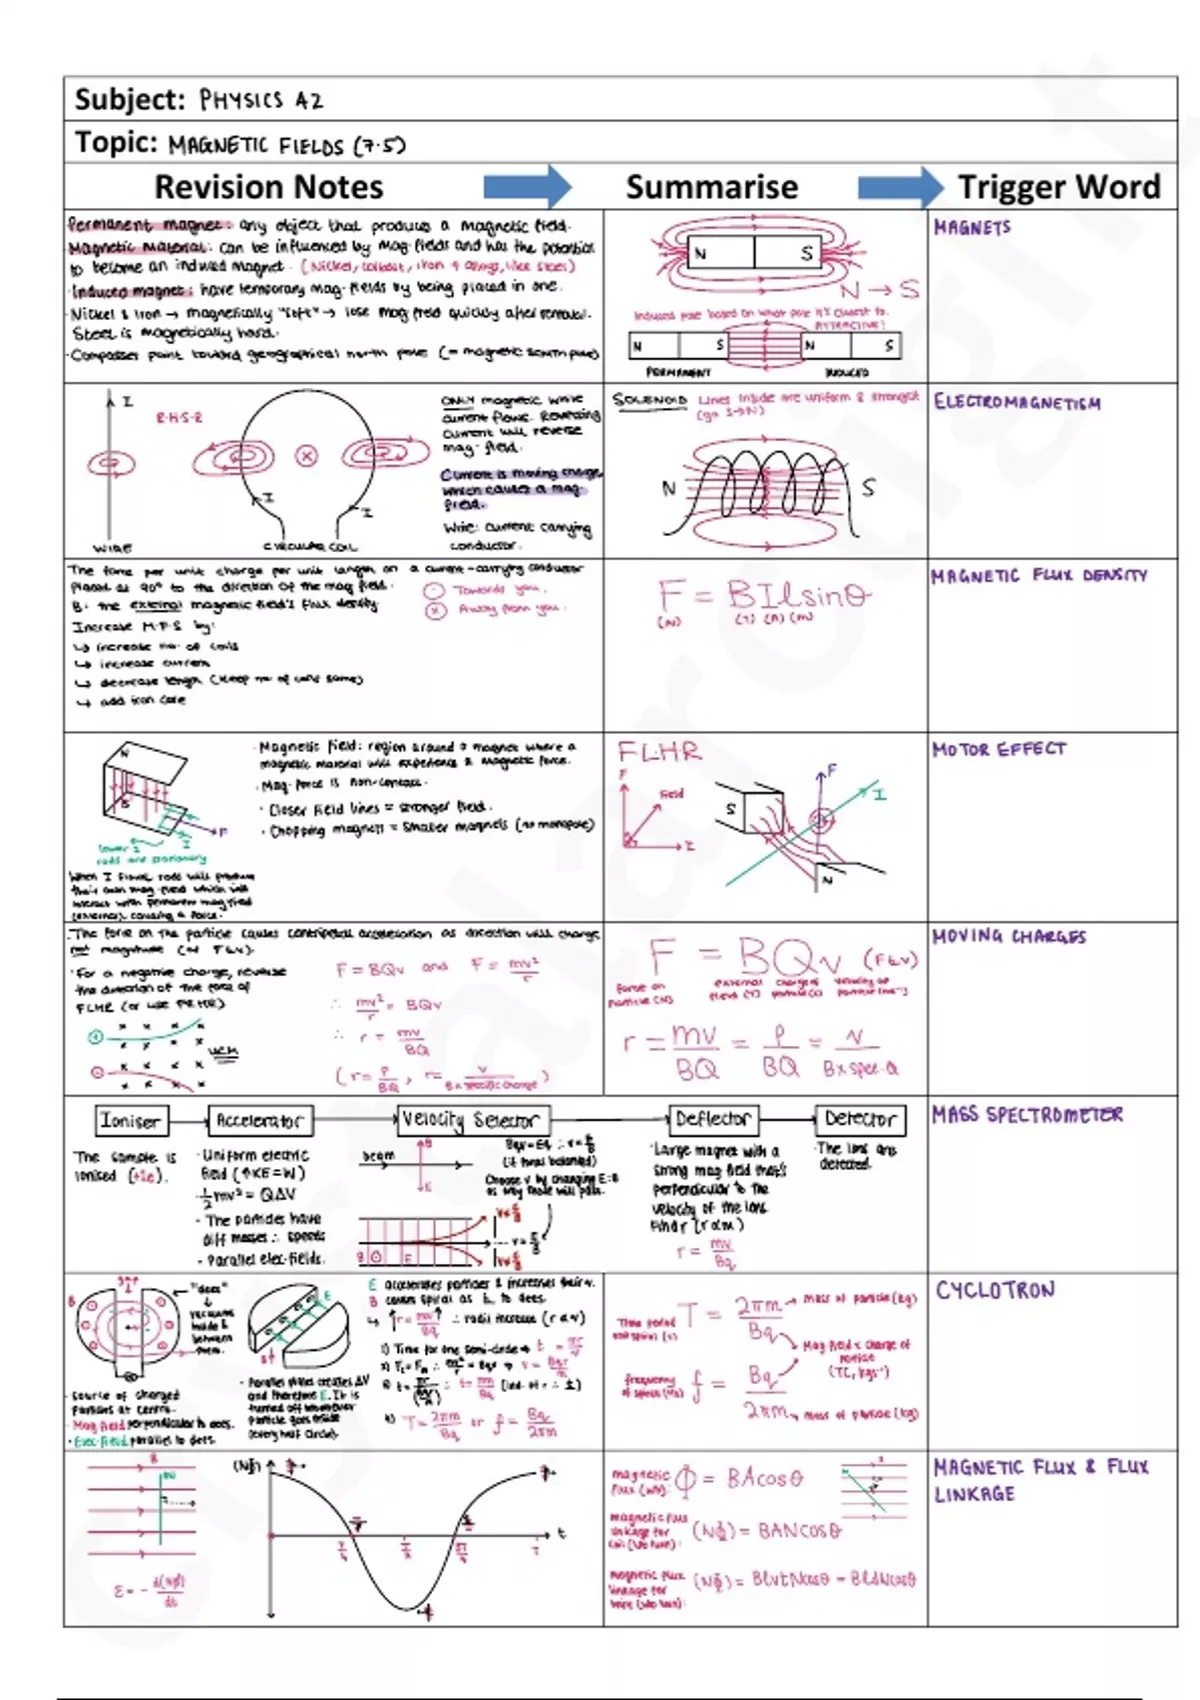 Subject: PHYSICS A2
Topic: MAGNETIC FIELDS (7.5)
Revision Notes
Summarise
Trigger Word
Permanent magnet: any object that produces a magnetic field.
Magnetic Material: can be influenced by mag fields and has the potential
to become an induced magnet. (Nickel, cobalt, iron + alloys, like steel)
Induced magnet: have temporary mag-fields by being placed in one.
Nickel & Iron → magnetically "soft" → lose mag field quickly after removal.
Steel is magnetically hard.
Compasses point toward geographical north pole (= magnetic south pole)
N S
N → S
Induced pole based on what pole it's closest to.
ATTRACTIVE!
N S N S
PERMANENT INDUCED
MAGNETS
I
R.H.S.R
I I
WIRE
CIRCULAR COIL
ONLY magnetic while
current flows. Reversing
current will reverse
mag-field.
Current is moving charge,
which causes a mag-
field.
Wire: current carrying
conductor.
SOLENOID Lines inside are uniform & strongest
(go S→N)
N S
ELECTROMAGNETISM
The force per unit charge per unit length on a current-carrying conductor
placed at 90° to the direction of the mag field.
B: the external magnetic field's flux density
Towards you.
Away from you.
Increase M.F.S by:
↳ increase no. of coils
↳ increase current
↳ decrease length (keep no. of coils same)
↳ add iron core
F = BIlsinθ
(N) (T) (A) (m)
MAGNETIC FLUX DENSITY
N
S
F
I
rods are stationary
When I flows, rods will produce
their own mag-field which will
interact with permanent mag field
(external), causing a force.
Magnetic field: region around a magnet where a
magnetic material will experience a magnetic force.
Mag-force is non-contact.
Closer field lines = stronger field.
Chopping magnets = smaller magnets (no monopole)
FLHR
F
Field
I
S
F
I
N
MOTOR EFFECT
The force on the particle causes centripetal acceleration as direction will change,
not magnitude (as F⊥v).
For a negative charge, reverse
the direction of the force of
FLHR (or use FRHR)
UCM
F = BQv and F = mv²/r
∴ mv²/r = BQv
∴ r = mv/BQ
(r = p/BQ, r = v/B x specific charge)
F = BQv (F⊥v)
force on external charge of velocity of
particle (N) field (T) particle (C) particle (ms⁻¹)
r = mv/BQ = p/BQ = v/B x spec. Q
MOVING CHARGES
Ioniser
Accelerator
Velocity Selector
Deflector
Detector
The sample is
ionised (+1e).
Uniform electric
field (↑KE = W)
½mv² = QΔV
The particles have
diff masses ∴ speeds
Parallel elec-fields.
beam
B
E
Bqv = Eq ∴ v = E/B
(if forces balanced)
Choose v by changing E:B
as only those will pass.
v = E/B
B E
Large magnet with a
strong mag field that's
perpendicular to the
velocity of the ions.
Find r (r α m)
r = mv/Bq
The ions are
detected.
MASS SPECTROMETER
gap
B
"dees"
vacuums
inside &
between
them.
Source of charged
particles at centre.
Mag field perpendicular to dees.
Elec-field parallel to dees.
E
Parallel plates creates ΔV
and therefore E. It is
turned off whenever
particle goes inside
(every half circle).
E accelerates particles & increases their v.
B causes spiral as ⊥ to dees.
↳ ↑r = mv↑/Bq ∴ radii increase (r α v)
1) Time for one semi-circle → t = πr/v
T = 2πm/Bq or f = Bq/2πm
Time period
T = 2πm/Bq
mass of particle (kg)
Mag-field x charge of
particle
frequency
of spiral (Hz)
f = Bq/2πm
mass of particle (kg)
CYCLOTRON
B
ε = - d(NΦ)/dt
(NΦ)
t
magnetic
flux (Wb): Φ = BAcosθ
magnetic flux
linkage for
coil (Wb turn): (NΦ) = BANcosθ
magnetic flux
linkage for
wire (Wb turn): (NΦ) = BlvtNcosθ = BldNcosθ
MAGNETIC FLUX & FLUX
LINKAGE